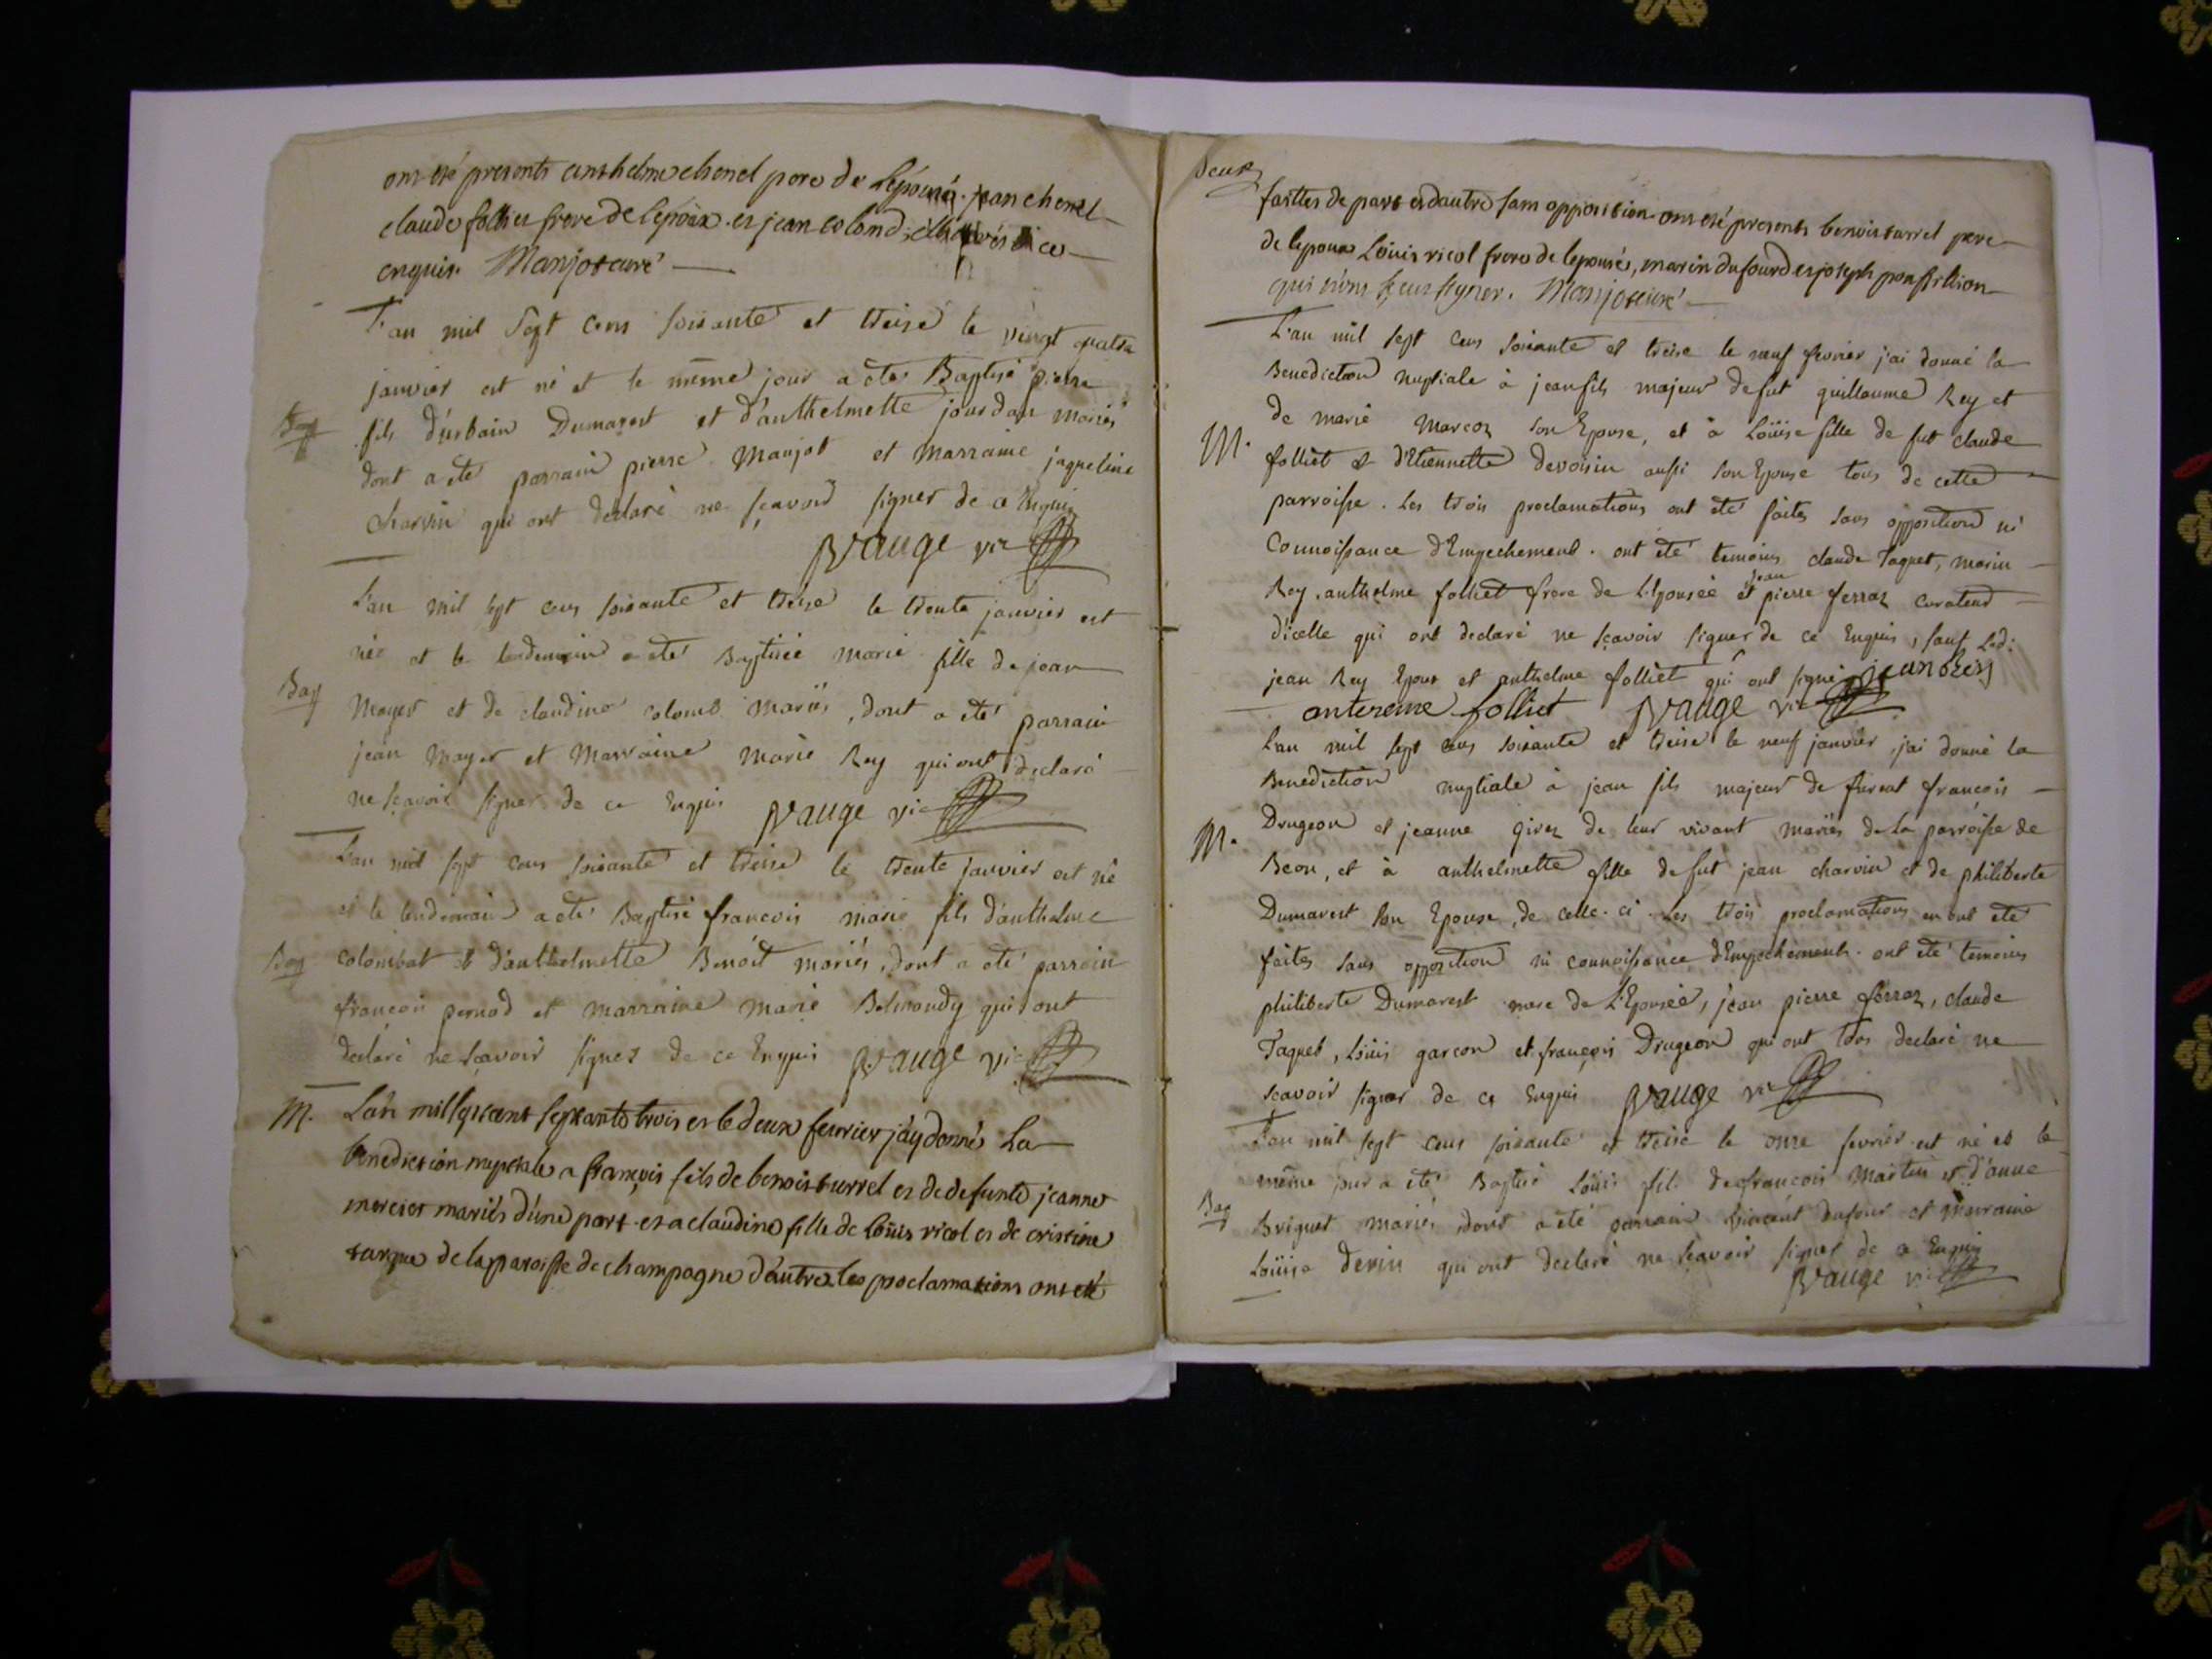 ont eté presents anthelme chenel pere de Lépousé. jean chenel
claude folliet frere de lépoux. et jean colond
enquis. Manjot curé
L'an mil sept cens soixante et treise le vingt quatre
janvier est né et le même jour a èté Baptisé pierre
Bap
fils d'urbain Dumarest et d'anthelmette jourdan mariés
dont a èté parrain pierre Manjot et marraine jaqueline
charvin qui ont déclaré ne sçavoir signer de ce Enquis
Vauge vic
L'an mil sept cens soixante et treise le trente janvier est
née et le lendemain a eté Baptisée marie fille de jean
Bap
Mayer et de claudine colomb mariés, dont a èté parrain
jean Mayer et Marraine Marie Rey qui ont declaré
ne sçavoir signer de ce Enquis Vauge vic
L'an mil sept cens soixante et treise le trente janvier est né
et le lendemain a eté Baptisé francois marie fils d'anthelme
Bap
colombat et d'anthelmette Benoit mariés, dont a eté parrain
francois pernod et marraine Marie qui ont
declaré ne sçavoir signer de ce Enquis Vauge vic
M.
L'an mil sept cent septante trois et le deux feuvrier j'ay donné La
benediction nuptiale a françois fils de benoit surrel et de defunte jeanne
mercier mariés d'une part et a claudine fille de Loüis ricol et de cristine
de la paroisse de champagne d'autre les proclamations ont eté
deux
faittes de part et dautre sans opposition ont eté presents benoit surrel pere
de lepoux Loüis ricol frere de lepousé, marin dufourd et joseph
qui n'ont sceu signer. Manjot curé
L'an mil sept cens soixante et treise le neuf fevrier j'ai donné la
Benediction nuptiale à jean fils majeur de fut guillaume Rey et
de marie Marcoz son Epouse, et à Loüise fille de fut claude
M.
folliet et d'Etiennette devoisin aussi son Epouse tous de cette
parroisse. Les trois proclamations ont eté faites sans opposition ni
Connoissance d'Empechement. ont eté temoins claude Taquet, marin
Rey, anthelme folliet frere de L'Epousée et jean pierre ferraz curateur
d'icelle qui ont declaré ne sçavoir signer de ce Enquis, sauf led:
jean Rey Epoux et anthelme folliet qui ont signé jean Rey
anterme folliet Vauge vic
L'an mil sept cens soixante et treise le neuf janvier j'ai donné la
Benediction nuptiale à jean fils majeur de furent françois
Drugeon et jeanne girez de leur vivant mariés de la parroisse de
M.
Beon, et à anthelmette fille de fut jean charvin et de philiberte
Dumarest son Epouse, de celle-ci. Les trois proclamations en ont eté
faites sans opposition ni connoissance d'Empechements. ont eté temoins
philiberte Dumarest mere de L'Epousée, jean pierre ferraz, claude
Taquet, Loüis garcon et françois Drugeon qui ont tous declaré ne
scavoir signer de ce Enquis Vauge vic
L'an mil sept cens soixante et treise le onse fevrier est né et le
même jour a eté Baptisé Loüis fils de francois Martin et d'anne
Bap
Briguet mariés, dont a eté parrain vincent dufour et Marraine
Loüise Devin qui ont declaré ne sçavoir signer de ce Enquis
Vauge vic